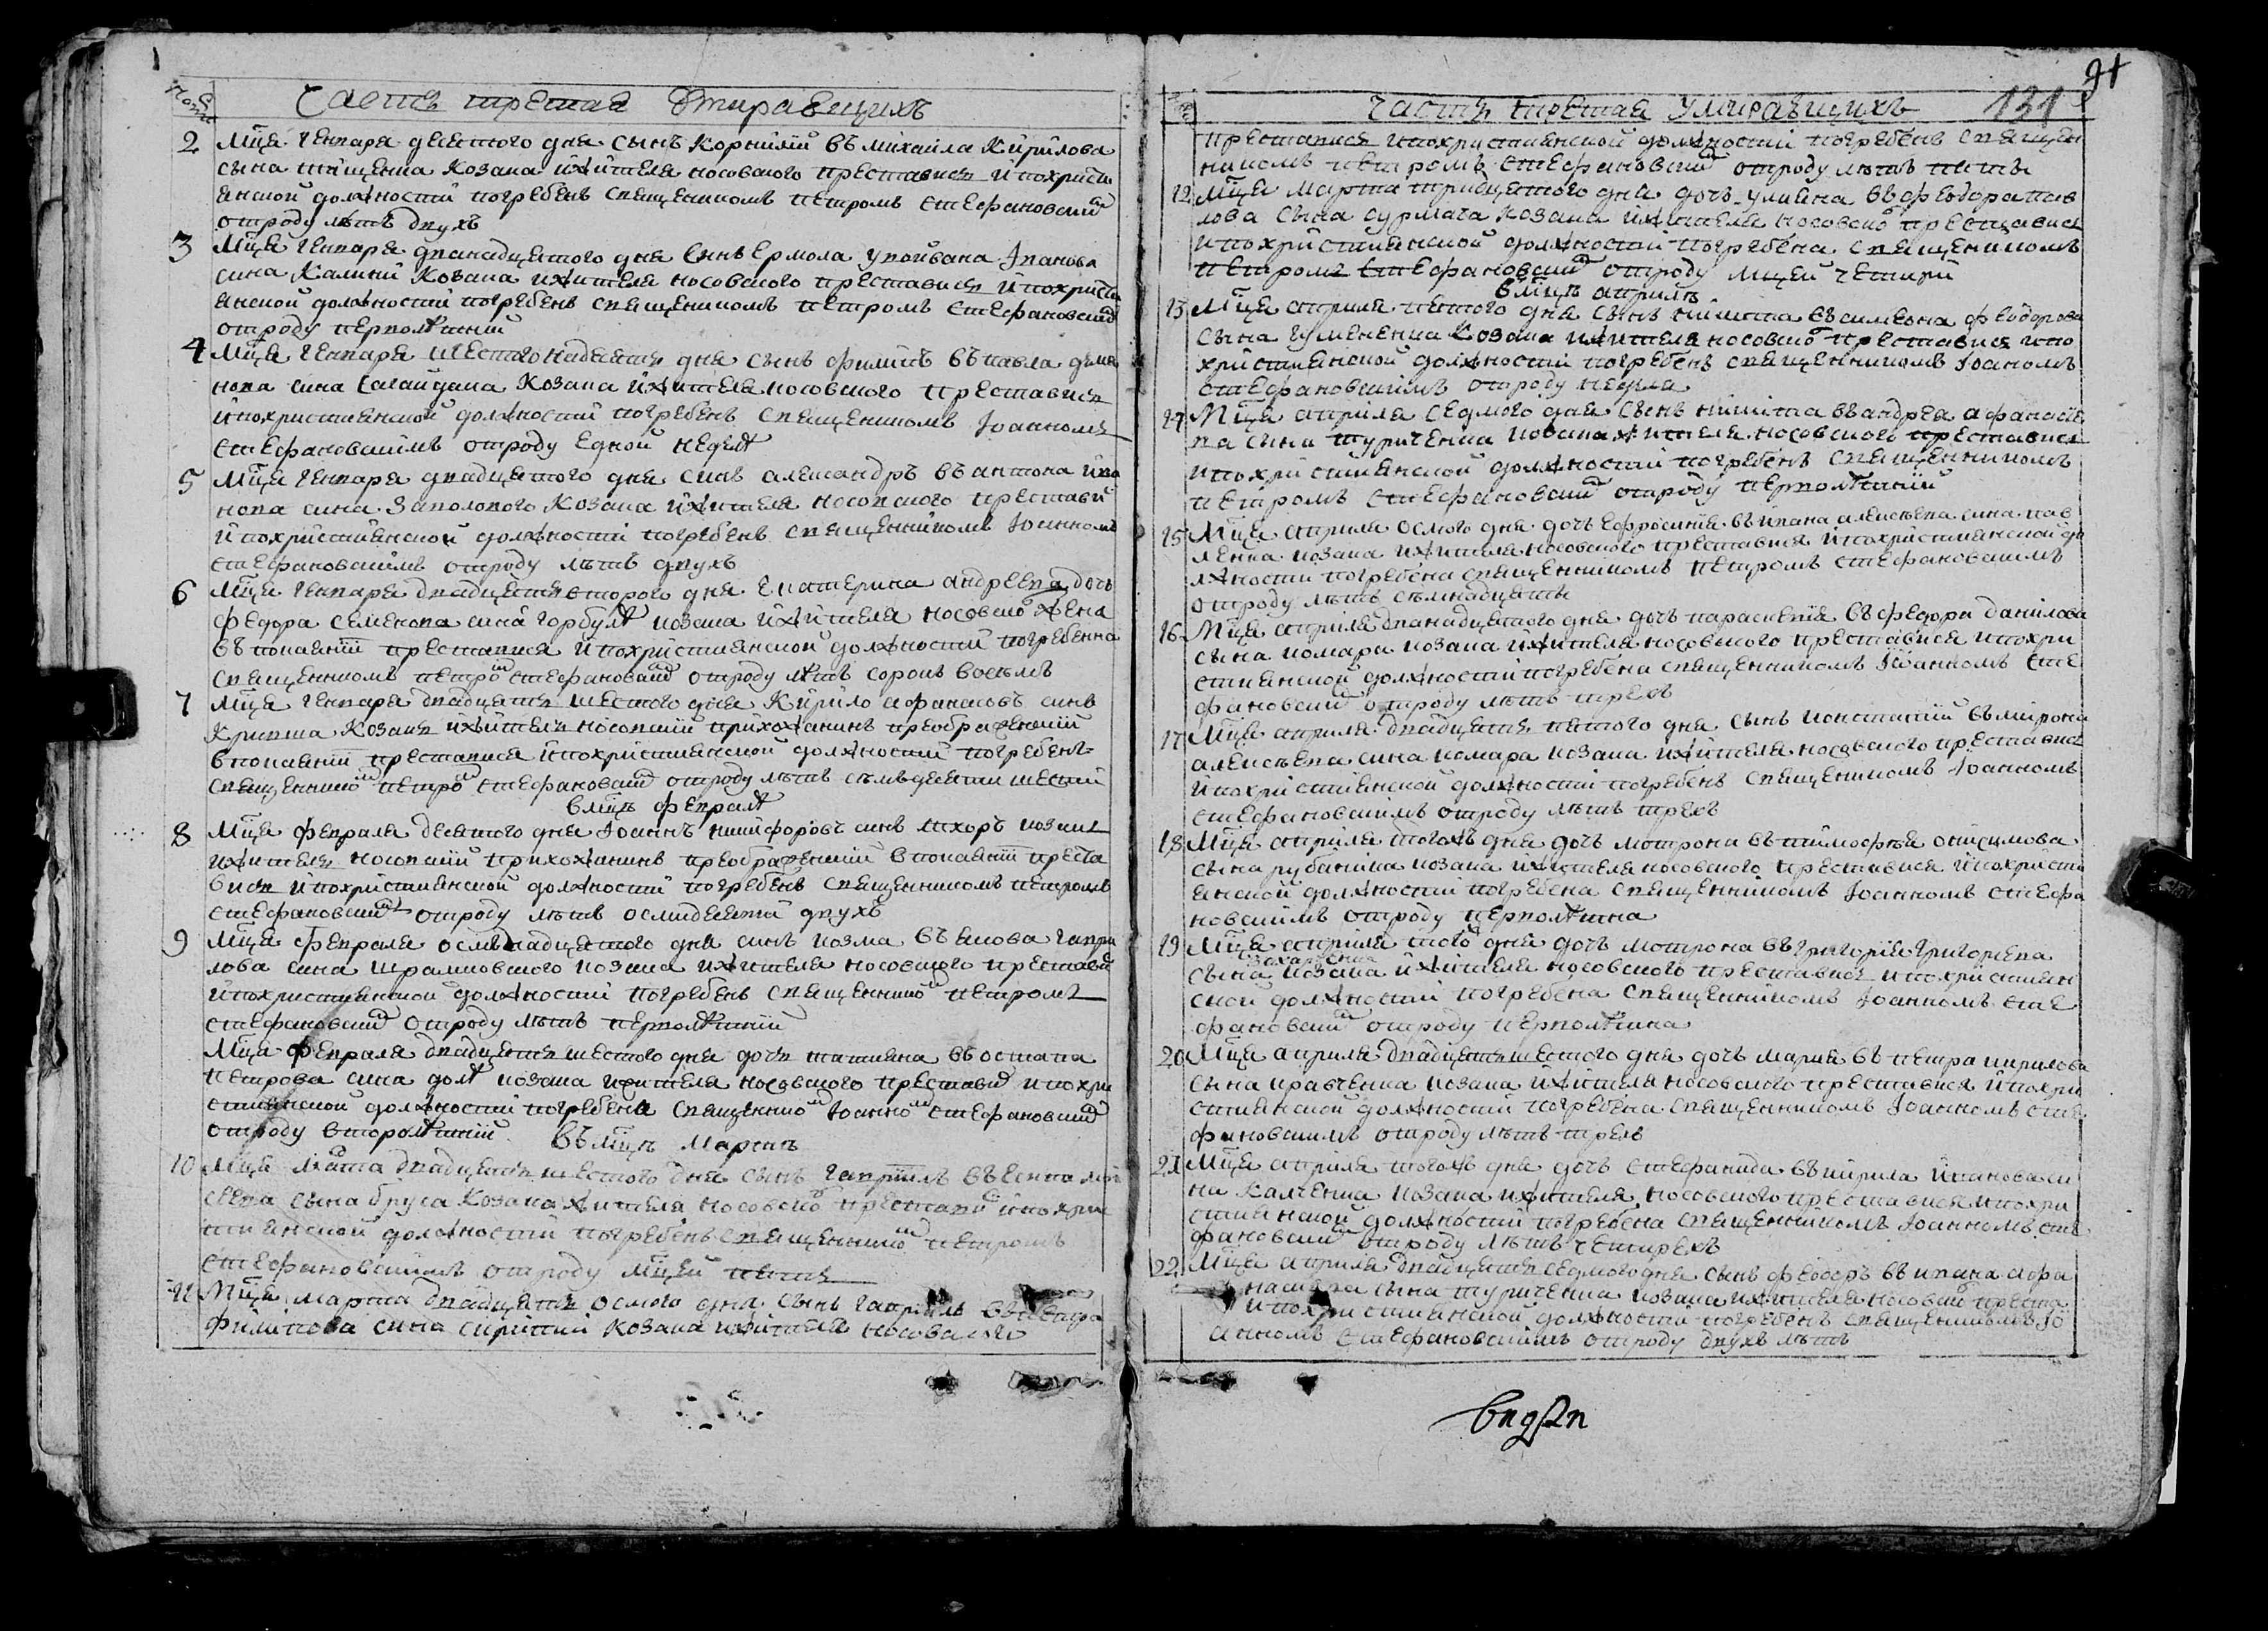 часть третая Умиравшихъ
2 Мца генваря десятого дня сынъ Корнилий въ михаила Кирилова
сына тищенка козака и жителя носовского преставися и по христи
янской должности погребенъ священикомъ петромъ стефановским
от роду лѣтъ двухъ
3 Мца генваря дванадцятого дня синъ Ермола у Iванова
сина Калини козака и жителя носовского преставися и по христи
янской должности погребенъ священикомъ петромъ стефановским
от роду перволѣтний
4 Мца генваря шестогонадесять дня сынъ филипъ въ павла деми
нова сина Сагайдака козака и жителя носовского преставися
и по християнской должности погребенъ священикомъ Iоанномъ
стефановскимъ от роду едной неделѣ
5 Мца генваря двадцятого дня синъ александръ въ антона ива
нова сина Заполового козака и жителя носовского престави
и по християнской должности погребенъ священникомъ Iоанномъ
стефановскимъ от роду лѣтъ двухъ
6 Мца генваря двадцять второго дня Екатерина андреева дочь
федора семенова сина горбулѣ козака и жителя носовско жена
въ покаянии преставися и по християнской должности погребенна
священникомъ петро стефановским от роду лѣтъ сорокъ восемъ
7 Мца генваря двадцять шестого дня Кирило афанасовъ синъ
Кривша козакъ и житель носовский прихожанинъ преображенский
в покаянии преставися и по християнской должности погребенъ
священнико петро стефановским от роду лѣтъ семьдесяти шести
в мцѣ февралѣ
8 Мца февраля десятого дня Iоаннъ никифоровъ синъ лихоръ козакъ
и житель носовский прихожанинъ преображенский в покаянии преста
вися и по християнской должности погребенъ священникомъ петромъ
стефановским от роду лѣтъ осмидесяти двухъ
9 Мца февраля осмънадцятого дня синъ козма въ якова гаври
лова сина шрамковского козака и жителя носовского престави
и по християнской должности погребенъ священнико петромъ
стефановским от роду лѣтъ перволѣтний
Мца февраля двадцять шестого дня дочь татияна въ остапа
петрова сина долѣ козака и жителя носовского престави и по хри
стиянской должности погребена священико Iоанно стефановским
от роду второлѣтний
въ мцѣ мартѣ
10 Мца мата двадцять шестого дня сынъ гавриилъ въ
сеева сына бруса козака жителя носовско престави и по хри
стиянской должности погребенъ священнико петромъ
стефановскимъ от роду мцей пять
11 Мца марта двадцять осмого дня сынъ гавриилъ въ
филипова сина козака и жителя носовского
часть третая умиравшихъ 131 91
преставися и по християнской должности погребенъ священ
никомъ петромъ стефановским от роду лѣтъ пяты
12 Мца марта тридцятого дня дочь улияна въ федора пав
лова сына сурмача козака и жителя носовско преставися
и по християнской должности погребена священикомъ
петромъ стефановским от роду мцей четири
в мцѣ априлѣ
13 Мца априля пятого дня сынъ никита въ симеона феодорова
сына гумененка козака и жителя носовско преставися и по
християнской должности погребенъ священникомъ Iоаномъ
стефановскимъ от роду неделя
14 Мца априля седмого дня сынъ никита въ андрея афанасие
ва сына туриченка козака жителя носовского преставися
и по християнской должности погребенъ священникомъ
петромъ стефановским от роду перволѣтний
15 Мца априля осмого дня дочь ефросиния въ ивана алексеева сина пав
ленка козака и жителя носовского преставися и по християнской до
лжности погребена священникомъ петромъ стефановскимъ
от роду лѣтъ семнадцяты
16 Мца априля дванадцятого дня дочь параскевия въ федора данилова
сына комара козака и жителя носовского преставися и по хри
стиянской должности погребена священникомъ Iоанномъ сте
фановским от роду лѣтъ трехъ
17 Мца априля двадцять пятого дня сынъ въ мирона
алексеева сина комара козака и жителя носовского преставися
и по християнской должности погребенъ священикомъ Iоанномъ
стефановскимъ от роду лѣтъ трехъ
18 Мца априля тогожъ дня дочь мотрона въ тимофея онисимова
сына рубаника козака и жителя носовского преставися и по христи
янской должности погребена священникомъ Iоанномъ стефа
новскимъ от роду перволѣтна
19 Мца априля того дня дочь мотрона въ григория григориева
захарченка
сына козака и жителя носовского преставися и по християн
ской должности погребена священникомъ Iоанномъ сте
фановским от роду перволѣтна
20 Мца априля двадцять шестого дня дочь мария въ петра кирилова
сына кравченка козака и жителя носовского преставися и по хри
стиянской должности погребена священникомъ Iоанномъ сте
фановскимъ от роду лѣтъ трехъ
21 Мца априля тогожъ дня дочь стефанида въ кирила иванова си
на калченка козака и жителя носовского преставися и по хри
стиянской должности погребена священникомъ Iоанномъ сте
фановским от роду лѣтъ четирехъ
22 Мца априля двадцять седмого дня сынъ феодоръ въ ивана афа
насиева сына туриченка козака и жителя носовско преста
и по християнской должности погребенъ священикомъ Iо
анномъ стефановскимъ от роду двухъ лѣтъ